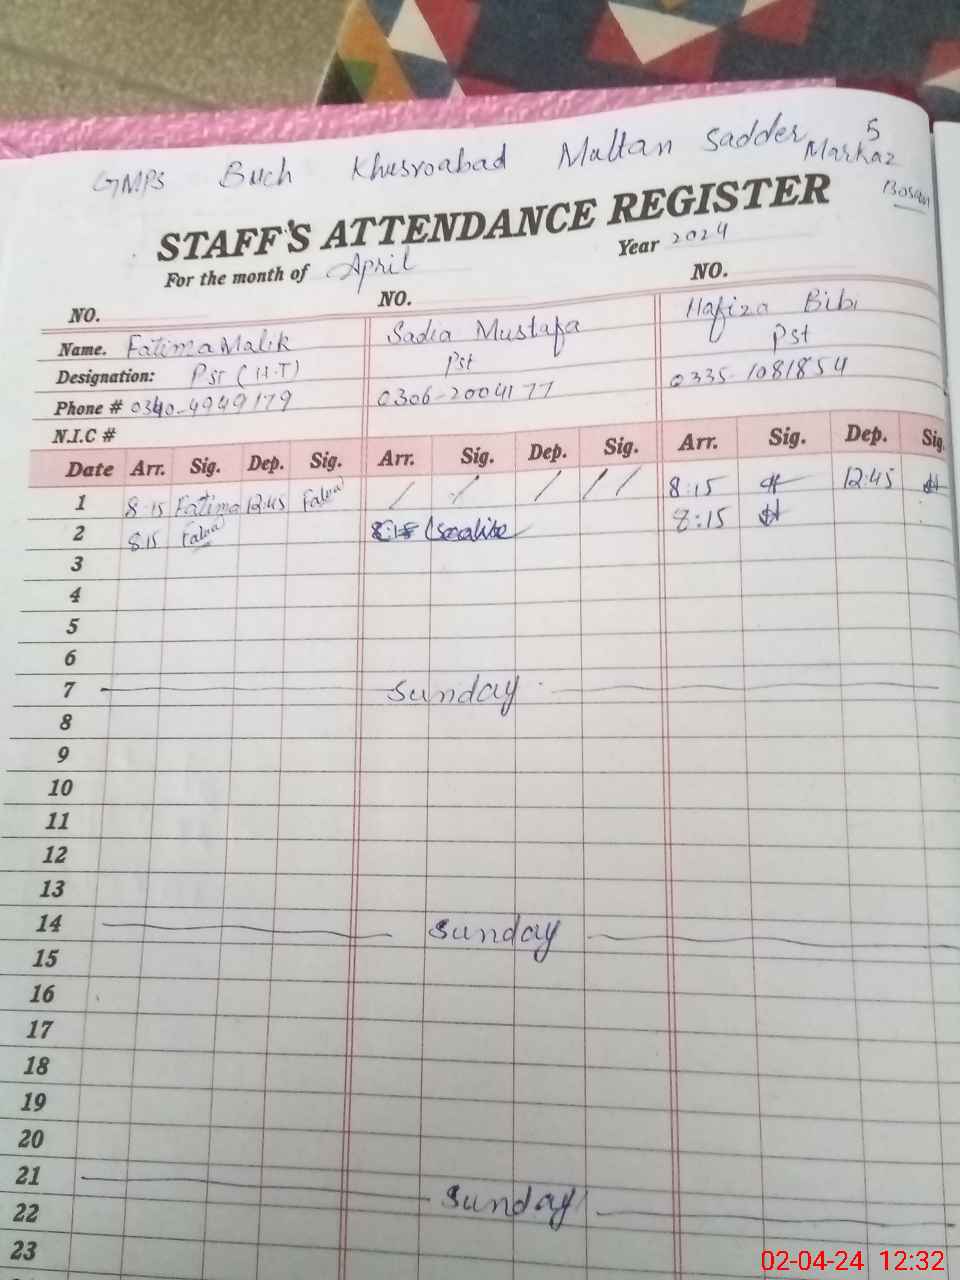 5
GMPS Buch Khusroabad Multan Sadder Markaz
Bosan
STAFF'S ATTENDANCE REGISTER
For the month of April Year 2024
NO. NO. NO.
Name. Fatima Malik Sadia Mustafa Hafiza Bibi
Designation: Pst (H.T) Pst Pst
Phone # 0340-4949179 0306-2004177 0335-1081854
N.I.C #
Date Arr. Sig. Dep. Sig. Arr. Sig. Dep. Sig. Arr. Sig. Dep. Sig.
1 8:15 Fatima 12:45 / / / / / 8:15 12:45
2 8:15 8:15 8:15
3
4
5
6
7 Sunday
8
9
10
11
12
13
14 Sunday
15
16
17
18
19
20
21 Sunday
22
23
02-04-24 12:32